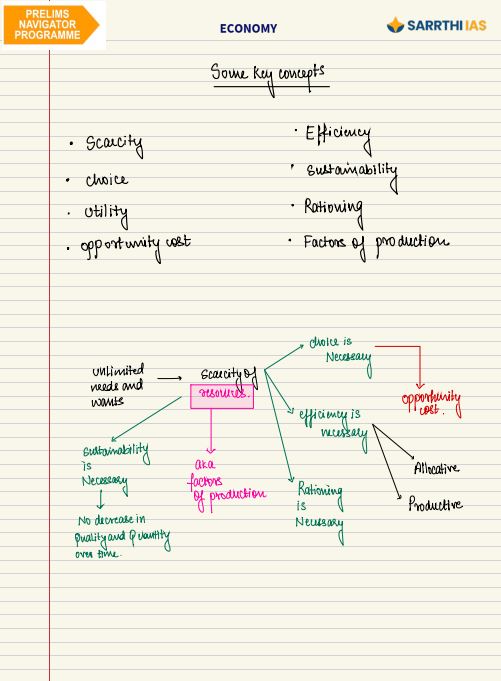 PRELIMS
NAVIGATOR
PROGRAMME
ECONOMY
SARRTHI IAS
Some key concepts
• Scarcity
• choice
• utility
• opportunity cost
• Efficiency
• sustainability
• Rationing
• Factors of production
unlimited
needs and
wants
scarcity of
resources.
choice is
Necessary
opportunity
cost.
efficiency is
necessary
Allocative
Productive
Rationing
is
Necessary
aka
factors
of production
sustainability
is
Necessary
No decrease in
Quality and Quantity
over time.